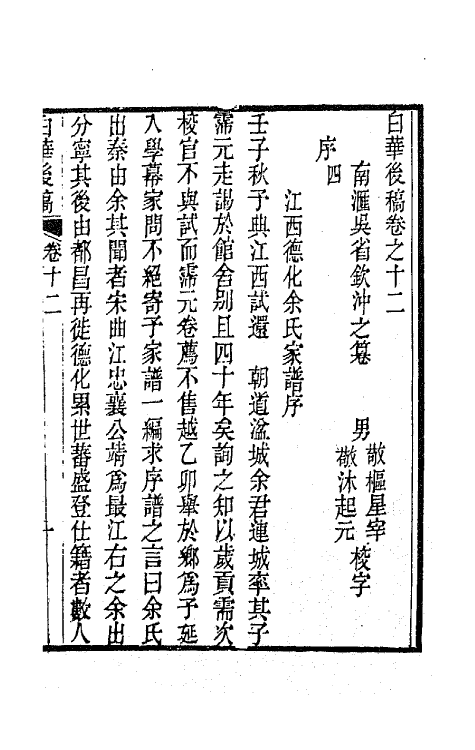 白華後稿卷之十二
南滙吳省欽沖之纂
男敬樞星宰
敬沐起元
校字
序四
江西德化余氏家譜序
壬子秋予典江西試還　朝道湓城余君連城率其子
霈元走謁於館舍别且四十年矣詢之知以歲貢需次
校官不與試而霈元卷薦不售越乙卯舉於鄉爲予延
入學幕家問不絕寄予家譜一編求序譜之言曰余氏
出秦由余其聞者宋曲江忠襄公靖爲最江右之余出
分寧其後由都昌再徙德化累世蕃盛登仕籍者數人
白華後稿
卷十二
一